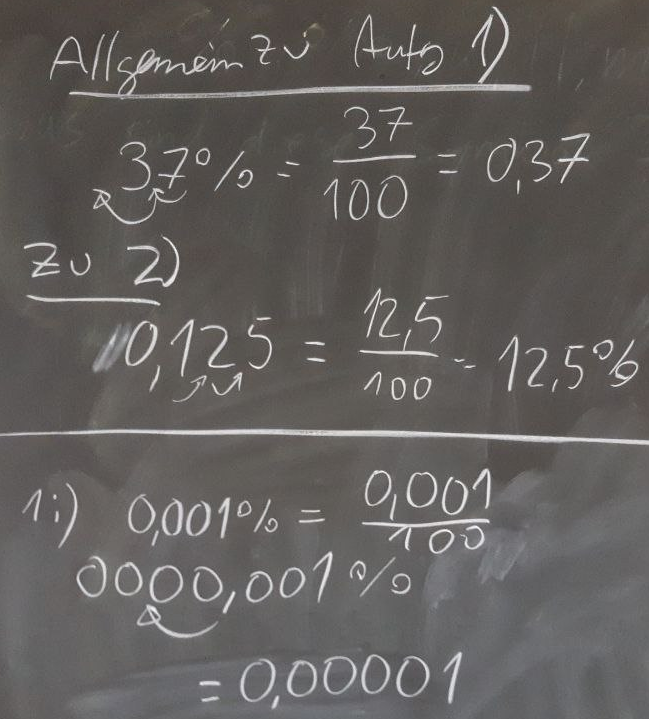 Allgemein zu Aufg 1)
37% = 37/100 = 0,37
zu 2)
0,125 = 12,5/100 = 12,5%
1i) 0,001% = 0,001/100
0000,001%
= 0,00001